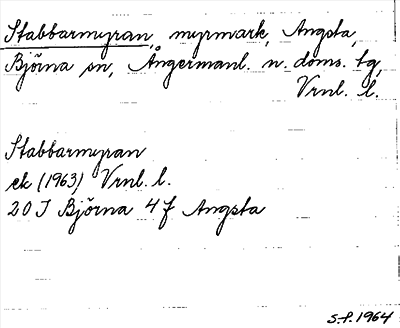 Stabbarmyran, myrmark, Angsta,
Björna sn, Ångermanl. n. doms. tg,
Vrnl. l.
Stabbarmyran
ek (1963) Vrnl. l.
20 J Björna 4 f Angsta
S.f. 1964